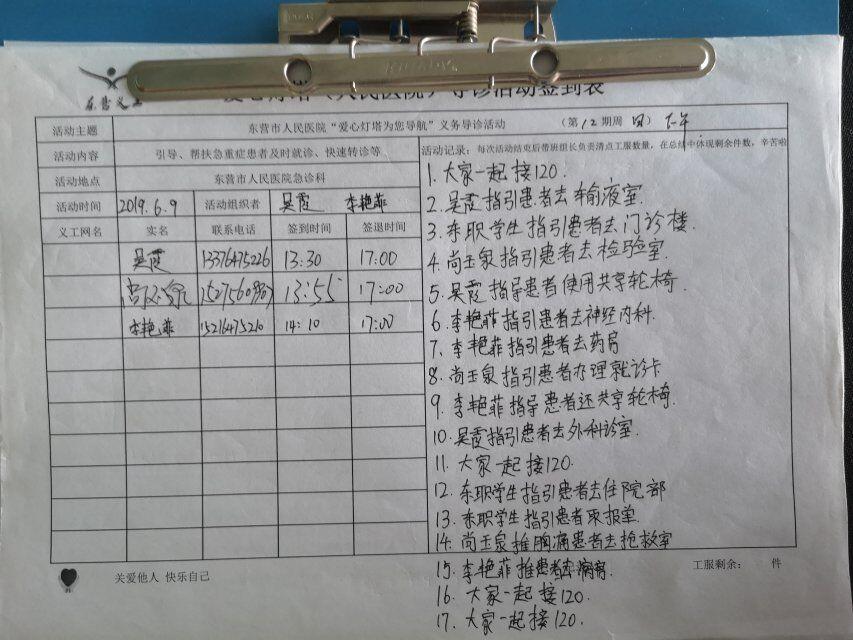 东营义工
爱心灯塔（人民医院）导诊活动签到表
活动主题 东营市人民医院“爱心灯塔为您导航”义务导诊活动 （第12期周 日） 下午
活动内容 引导、帮扶急重症患者及时就诊、快速转诊等
活动地点 东营市人民医院急诊科
活动时间 2019.6.9 活动组织者 吴霞 李艳菲
义工网名 实名 联系电话 签到时间 签退时间
吴霞 13376475226 13:30 17:00
尚玉泉 13:55 17:00
李艳菲 15216475210 14:10 17:00
活动记录：每次活动结束后带班组长负责清点工服数量，在总结中体现剩余件数，辛苦啦
1. 大家一起接120.
2. 吴霞指引患者去输液室.
3. 东职学生指引患者去门诊楼.
4. 尚玉泉指引患者去检验室.
5. 吴霞指导患者使用共享轮椅.
6. 李艳菲指引患者去神经内科.
7. 李艳菲指引患者去药局
8. 尚玉泉指引患者办理就诊卡
9. 李艳菲指导患者还共享轮椅.
10. 吴霞指引患者去外科诊室.
11. 大家一起接120.
12. 东职学生指引患者去住院部
13. 东职学生指引患者取报单.
14. 尚玉泉推胸痛患者去抢救室
15. 李艳菲推患者去病房.
16. 大家一起接120.
17. 大家一起接120.
关爱他人 快乐自己
工服剩余： 件